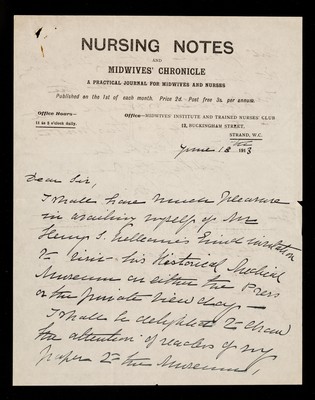 1.
NURSING NOTES
AND
MIDWIVES' CHRONICLE
A PRACTICAL JOURNAL FOR MIDWIVES AND NURSES
Published on the 1st of each month. Price 2d. Post free 3s. per annum.
Office Hours—
11 to 5 o'clock daily.
Office—MIDWIVES' INSTITUTE AND TRAINED NURSES' CLUB
12, BUCKINGHAM STREET,
STRAND, W.C.
June 18th 1913
Dear Sir,
I shall have much pleasure
in availing myself of Mr
Henry S. Wellcome's kind invitation
to view his Historical Medical
Museum on either the Press
or the Private View day—
I shall be delighted to draw
the attention of readers of my
paper to the Museum,